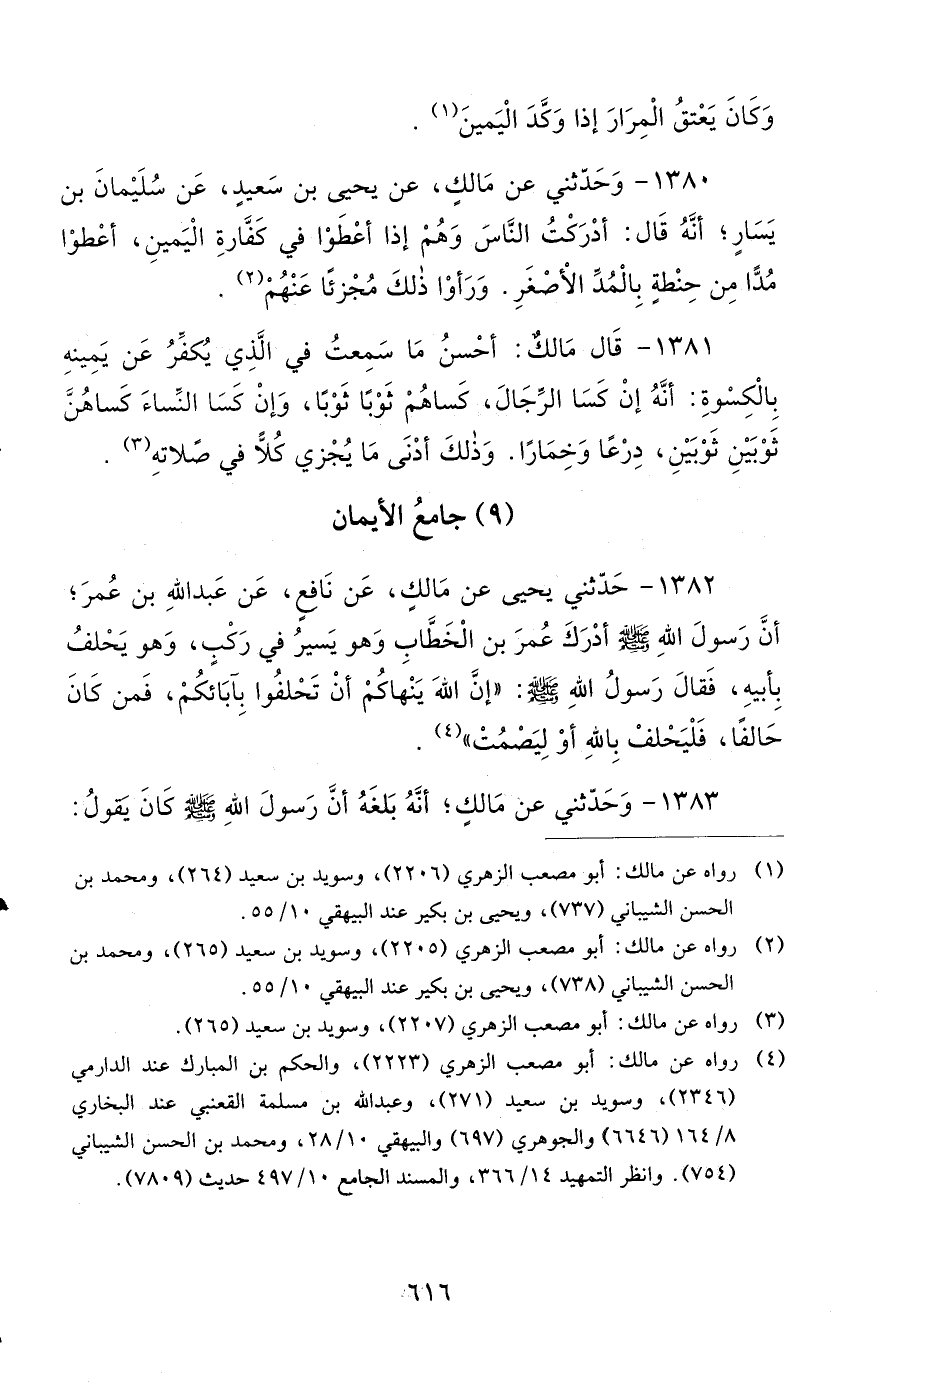 وَكَانَ يَعْتقُ الْمِرَارَ إذا وَكَّدَ الْيَمينَ(١) .
١٣٨٠- وَحَدّثني عن مَالكٍ، عن يحيى بن سَعيدٍ، عَن سُلَيْمانَ بن
يَسَارٍ؛ أنَّهُ قَال: أدْرَكْتُ النَّاسَ وَهُمْ إذا أعْطَوْا في كَفَّارةِ الْيَمينِ، أعْطوْا
مُدًّا مِن حِنْطةٍ بِالْمُدِّ الْأصْغَرِ. وَرَأوْا ذٰلكَ مُجْزئًا عَنْهُمْ(٢) .
١٣٨١- قَال مَالكٌ: أحْسنُ مَا سَمِعتُ في الَّذِي يُكفِّرُ عَن يَمِينهِ
بِالْكِسْوةِ: أنَّهُ إنْ كَسَا الرِّجَالَ، كَساهُمْ ثَوْبًا ثَوْبًا، وَإنْ كَسَا النِّساءَ كَساهُنَّ
ثَوْبَيْنِ ثَوْبَيْنِ، دِرْعًا وَخِمَارًا. وَذٰلكَ أدْنَى مَا يُجْزي كُلًّا في صَلاته(٣) .
(٩) جامعُ الأيمان
١٣٨٢- حَدّثني يحيى عن مَالكٍ، عَن نَافعٍ، عَن عَبداللهِ بن عُمرَ؛
أنَّ رَسولَ اللهِ ﷺ أدْرَكَ عُمرَ بن الْخَطَّابِ وَهو يَسيرُ في رَكْبٍ، وَهو يَحْلفُ
بِأبيهِ، فَقالَ رَسولُ اللهِ ﷺ: «إنَّ اللهَ يَنْهاكُمْ أنْ تَحْلفُوا بِآبَائكُمْ، فَمن كَانَ
حَالفًا، فَلْيَحْلفْ بِاللهِ أوْ لِيَصْمُتْ»(٤) .
١٣٨٣- وَحَدّثني عن مَالكٍ؛ أنَّهُ بَلغَهُ أنَّ رَسولَ اللهِ ﷺ كَانَ يَقولُ:
(١) رواه عن مالك: أبو مصعب الزهري (٢٢٠٦)، وسويد بن سعيد (٢٦٤)، ومحمد بن
الحسن الشيباني (٧٣٧)، ويحيى بن بكير عند البيهقي ١٠/ ٥٥.
(٢) رواه عن مالك: أبو مصعب الزهري (٢٢٠٥)، وسويد بن سعيد (٢٦٥)، ومحمد بن
الحسن الشيباني (٧٣٨)، ويحيى بن بكير عند البيهقي ١٠/ ٥٥.
(٣) رواه عن مالك: أبو مصعب الزهري (٢٢٠٧)، وسويد بن سعيد (٢٦٥).
(٤) رواه عن مالك: أبو مصعب الزهري (٢٢٢٣)، والحكم بن المبارك عند الدارمي
(٢٣٤٦)، وسويد بن سعيد (٢٧١)، وعبدالله بن مسلمة القعنبي عند البخاري
٨/ ١٦٤ (٦٦٤٦) والجوهري (٦٩٧) والبيهقي ١٠/ ٢٨، ومحمد بن الحسن الشيباني
(٧٥٤). وانظر التمهيد ١٤/ ٣٦٦، والمسند الجامع ١٠/ ٤٩٧ حديث (٧٨٠٩).
٦١٦